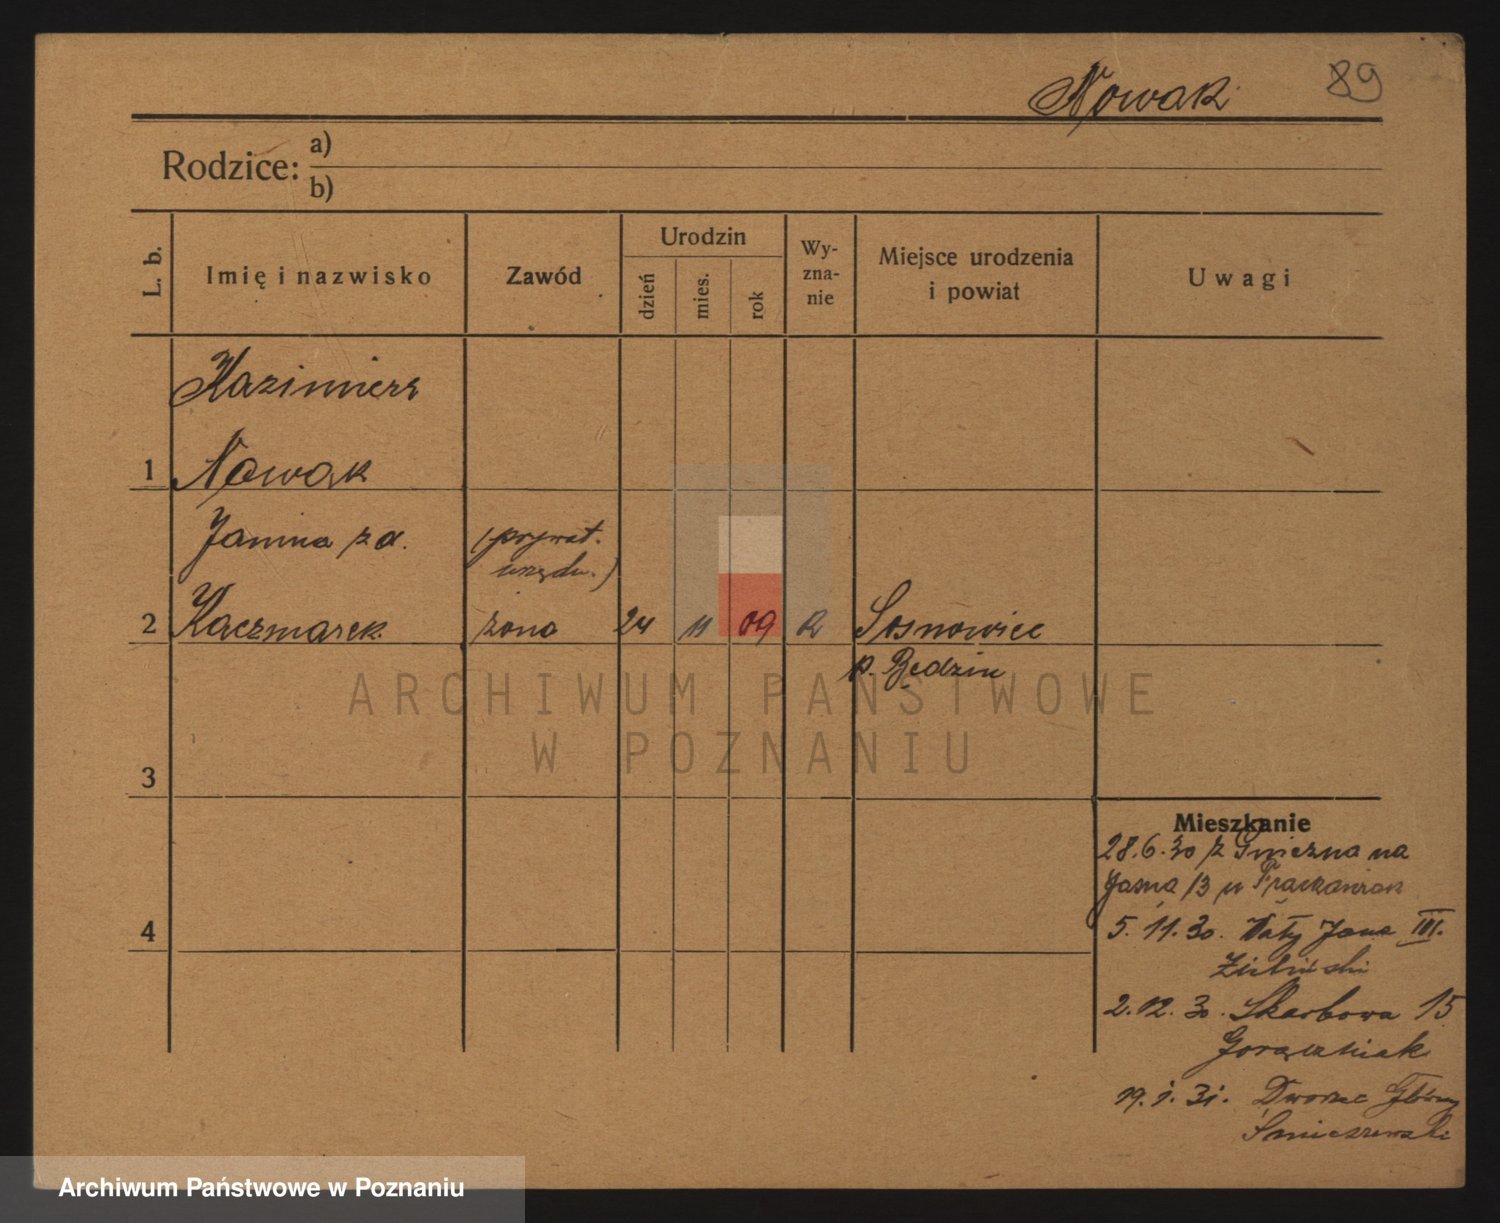 Nowak 89
Rodzice: a)
b)
L. b.
Imię i nazwisko
Zawód
Urodzin
dzień
mies.
rok
Wy-
zna-
nie
Miejsce urodzenia
i powiat
Uwagi
Kazimierz
1 Nowak
Janina zd. (prywat.
urzędn.)
2 Kaczmarek żona 24 11 09 R Sosnowiec
p. Będzin
ARCHIWUM PAŃSTWOWE
W POZNANIU
3
Mieszkanie
28.6.30 z Gniezna na
Jasną 13 u
4
5.11.30. Wały Jana III.
Zieliński
2.12.30. Skarbowa 15
Gorączniak
19.1.31. Dworzec Główny
Śmieszewski
Archiwum Państwowe w Poznaniu